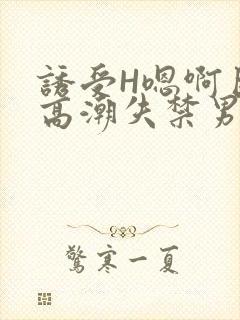 誘受H嗯啊
高潮失禁男
驚寒一夏